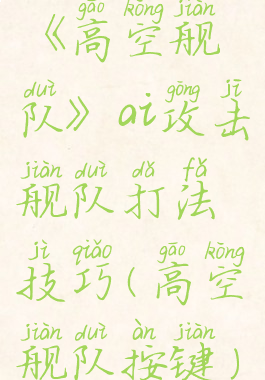 gāo kōng jiàn
《高空舰
duì gōng jī
队》ai攻击
jiàn duì dǎ fǎ
舰队打法
jì qiǎo gāo kōng
技巧(高空
jiàn duì àn jiàn
舰队按键)